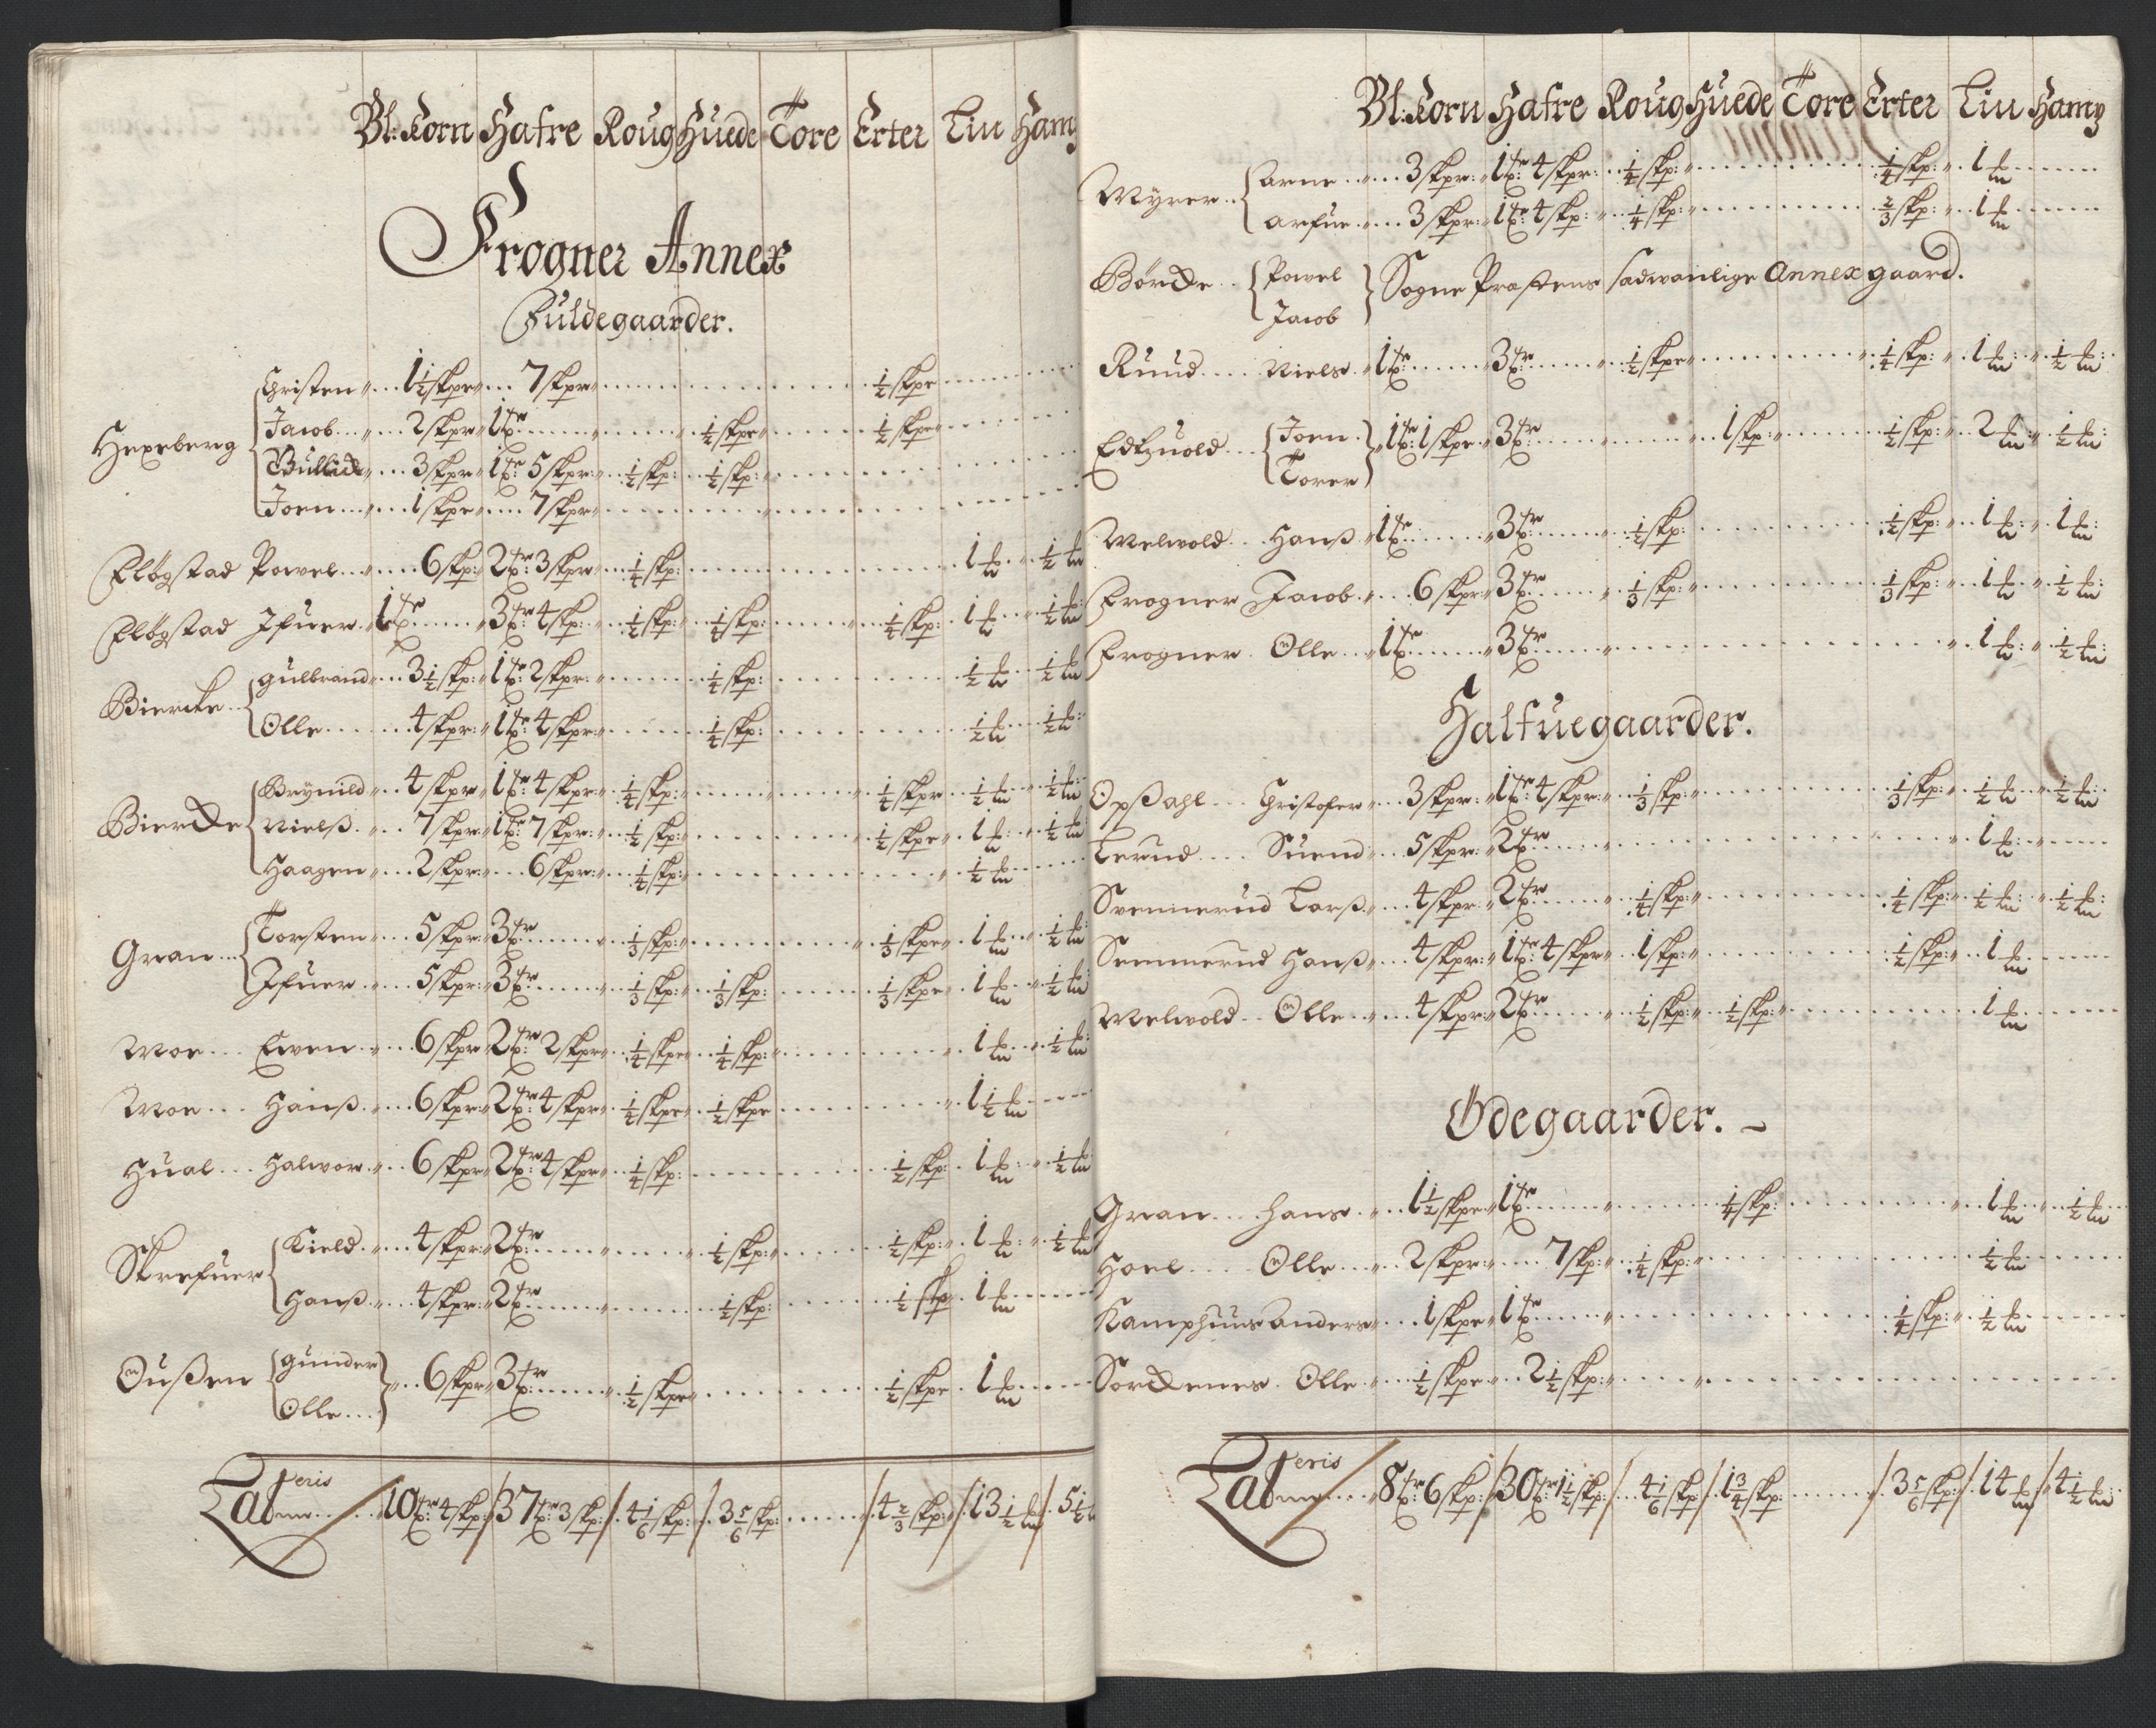 Bl: Korn Hafre Roug Huede Tore Erter Lin Hamp
Frogner Annex
Fuldegaarder.
Hexeberg Christen 1½ skpr 7 skpr ½ skpr
Jacob 2 skpr 1 tr ½ skpr ½ skpr
Gullich 3 skpr 1 tr: 5 skpr ½ skp: ½ skp:
Joen 1 skpr 7 skpr
Fløgstad Powel 6 skp: 2 tr: 3 skpr ¼ skp: 1 ℔ ½ ℔
Fløgstad Ifuer 1 tr 3 tr 4 skp: ½ skp: ¼ skp: ¼ skp: 1 ℔ ½ ℔
Biercke Gulbrand 3½ skp: 1 tr: 2 skpr: ¼ skp: ½ ℔ ½ ℔
Olle 4 skpr: 1 tr 4 skpr: ¼ skp: ½ ℔ ½ ℔
Biercke Brynild 4 skpr 1 tr: 4 skpr ¼ skp: ¼ skpr ½ ℔ ½ ℔
Nielß 7 skpr: 1 tr 7 skpr: ½ skp: ½ skpr 1 ℔ ½ ℔
Haagen 2 skpr: 6 skpr: ¼ skp: ½ ℔
Gran Torsten 5 skpr: 3 tr ⅓ skp: ⅓ skpr 1 ℔ ½ ℔
Ifuer 5 skpr: 3 tr ⅓ skp: ⅓ skp: ⅓ skpr 1 ℔ ½ ℔
Moe Ewen 6 skpr 2 tr: 2 skpr ¼ skpr ¼ skp: 1 ℔ ½ ℔
Moe Hanß 6 skpr: 2 tr: 4 skpr ¼ skpr ½ skpr 1½ ℔
Hual Halwor 6 skpr 2 tr 4 skpr ¼ skp: ½ skp: 1 ℔ ½ ℔
Skrefuer Kield 4 skpr: 2 tr ½ skp: ½ skp: 1 ℔ ½ ℔
Hanß 4 skpr: 2 tr ½ skp: ½ skp 1 ℔
Oußen Gunder Olle 6 skpr 3 tr ½ skpr ½ skpr 1 ℔
Lateris 10 tr: 4 skp: 37 tr: 3 skp: 4⅙ skp: 3⅚ skp: 4⅔ skp: 13½ ℔ 5½
Bl: Korn Hafre Roug Huede Tore Erter Lin Hamp
Myrer Arne 3 skpr: 1 tr 4 skpr: ¼ skp: ¼ skp: 1 ℔
Arfue 3 skpr: 1 tr: 4 skp: ¼ skp: ⅔ skp: 1 ℔
Børcke Powel Jacob Sogne Præstens sædwanlige Annex gaard.
Ruud Niels 1 tr 3 tr ½ skpr ¼ skp: 1 ℔ ½ ℔
Edtzuold Joen Torer 1 tr: 1 skpr 3 tr 1 skp: ½ skp: 2 ℔ ½ ℔
Melwold Hanß 1 tr 3 tr ½ skp: ½ skp: 1 ℔ 1 ℔
Frogner Jacob 6 skpr 3 tr ⅓ skp: ⅓ skp: 1 ℔ ½ ℔
Frogner Olle 1 tr 3 tr 1 ℔ ½ ℔
Halfuegaarder.
Opßahl Christofer 3 skpr: 1 tr 4 skpr: ⅓ skp: ⅓ skp: ½ ℔ ½ ℔
Lerud Suend 5 skpr: 2 tr 1 ℔
Svennerud Larß 4 skpr 2 tr ¼ skp: ¼ skp: ½ ℔ ½ ℔
Semmerud Hanß 4 skpr: 1 tr: 4 skpr 1 skp: ½ skp: 1 ℔
Melwold Olle 4 skpr: 2 tr ½ skp: ½ skp: 1 ℔
Ødegaarder.
Gran Hans 1½ skpr 1 tr ¼ skp: 1 ℔ ½ ℔
Hoel Olle 2 skpr: 7 skp: ¼ skp: ½ ℔
Kamphuus Anders 1 skpr 1 tr ¼ skp: ½ ℔
Sorckenes Olle ½ skpr 2½ skp:
Lateris 8 tr 6 skp: 30 tr: 1½ skp: 4⅙ skp: 1¾ skp: 3⅚ skp: 14 ℔ 4½ ℔